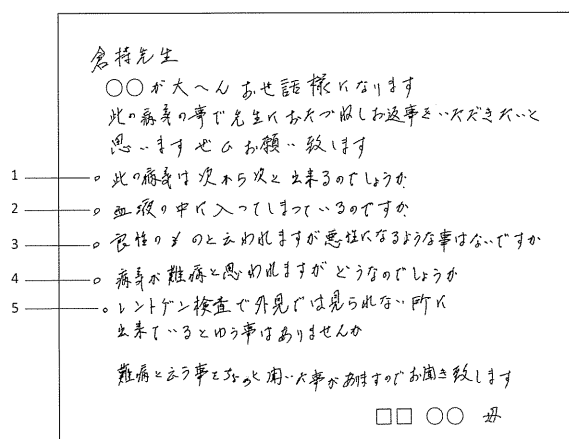 倉持先生
○○が大へんお世話様になります
此の病気の事で先生におたづねしお返事をいただきたいと
思いますぜひお願い致します
1 ○ 此の病気は次から次と出来るのでしょうか
2 ○ 血液の中に入ってしまっているのですか
3 ○ 良性のものと云われますが悪性になるような事はないですか
4 ○ 病気が難病と思われますがどうなのでしょうか
5 ○ レントゲン検査で外見では見られない所に
出来ているとゆう事はありませんか
難病と云う事をちょっと聞いた事がありますのでお聞き致します
□□ ○○ 母